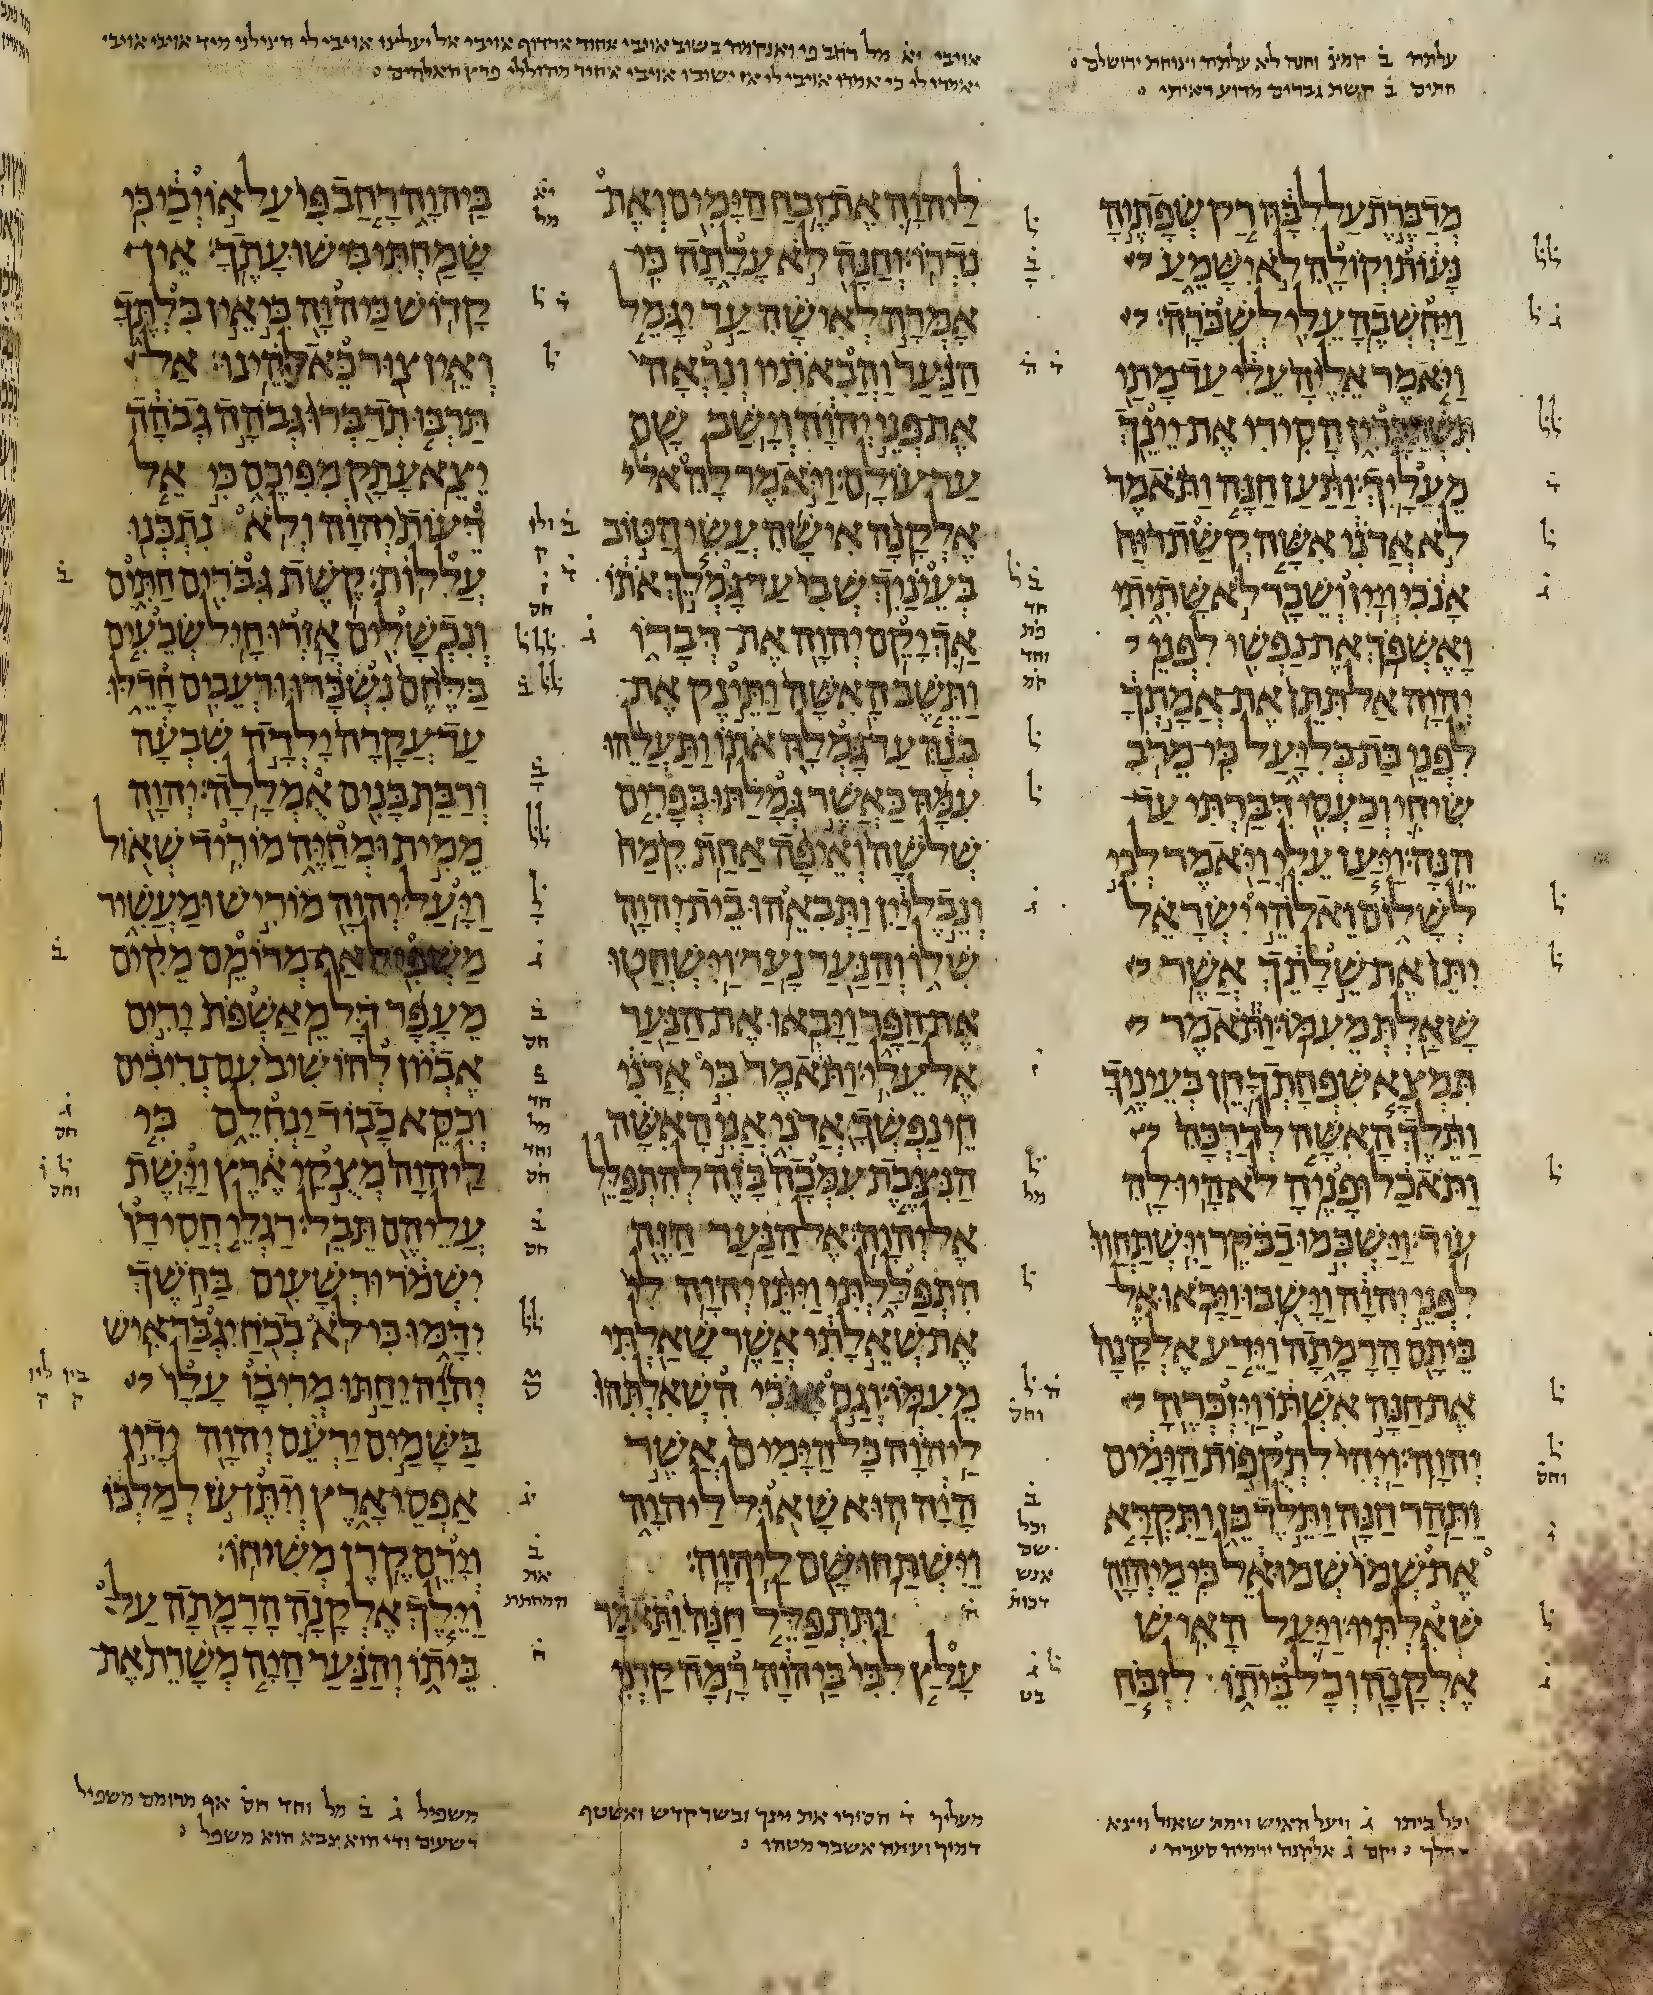 עלתה ב̇ קמיצ̇ וחנה לא עלתה וינוחת ירושלם
חתים ב̇ קשת גברים מדוע ראיתי
אויבי יא̇ מל רחב פי ואנקמה בשוב אויבי אחור ארדוף אויבי אל יעליצו אויבי לי הצילני מיד אויבי אויבי
יאמרו לי כי אמרו אויבי לי אז ישובו אויבי אחור מהוללי פרץ האלהים
מדברת על לבה רק שפתיה
נעות וקולה לא ישמע
ויחשבה עלי לשכרה׃
ויאמר אליה עלי עד מתי
תשתכרין הסירי את יינך
מעליך׃ ותען חנה ותאמר
לא אדני אשה קשת רוח
אנכי ויין ושכר לא שתיתי
ואשפך את נפשי לפני
יהוה׃ אל תתן את אמתך
לפני בת בליעל כי מרב
שיחי וכעסי דברתי עד
הנה׃ ויען עלי ויאמר לכי
לשלום ואלהי ישראל
יתן את שלתך אשר
שאלת מעמו׃ ותאמר
תמצא שפחתך חן בעיניך
ותלך האשה לדרכה
ותאכל ופניה לא היו לה
עוד׃ וישכמו בבקר וישתחוו
לפני יהוה וישבו ויבאו אל
ביתם הרמתה וידע אלקנה
את חנה אשתו ויזכרה
יהוה׃ ויהי לתקפות הימים
ותהר חנה ותלד בן ותקרא
את שמו שמואל כי מיהוה
שאלתיו׃ ויעל האיש
אלקנה וכל ביתו לזבח
ליהוה את זבח הימים ואת
נדרו׃ וחנה לא עלתה כי
אמרה לאישה עד יגמל
הנער והבאתיו ונראה
את פני יהוה וישב שם
עד עולם׃ ויאמר לה
אלקנה אישה עשי הטוב
בעיניך שבי עד גמלך אתו
אך יקם יהוה את דברו
ותשב האשה ותינק את
בנה עד גמלה אתו׃ ותעלהו
עמה כאשר גמלתו בפרים
שלשה ואיפה אחת קמח
ונבל יין ותבאהו בית יהוה
שלו והנער נער׃ וישחטו
את הפר ויבאו את הנער
אל עלי׃ ותאמר בי אדני
חי נפשך אדני אני האשה
הנצבת עמכה בזה להתפלל
אל יהוה׃ אל הנער הזה
התפללתי ויתן יהוה לי
את שאלתי אשר שאלתי
מעמו׃ וגם אנכי השאלתהו
ליהוה כל הימים אשר
היה הוא שאול ליהוה
וישתחו שם ליהוה׃
ותתפלל חנה ותאמר
עלץ לבי ביהוה רמה קרני
ביהוה רחב פי על אויבי כי
שמחתי בישועתך׃ אין
קדוש כיהוה כי אין בלתך
ואין צור כאלהינו׃ אל
תרבו תדברו גבהה גבהה
יצא עתק מפיכם כי אל
דעות יהוה ולא נתכנו
עללות׃ קשת גברים חתים
ונכשלים אזרו חיל׃ שבעים
בלחם נשכרו ורעבים חדלו
עד עקרה ילדה שבעה
ורבת בנים אמללה׃ יהוה
ממית ומחיה מוריד שאול
ויעל׃ יהוה מוריש ומעשיר
משפיל אף מרומם׃ מקים
מעפר דל מאשפת ירים
אביון להושיב עם נדיבים
וכסא כבוד ינחלם כי
ליהוה מצקי ארץ וישת
עליהם תבל׃ רגלי חסידו
ישמר ורשעים בחשך
ידמו כי לא בכח יגבר איש׃
יהוה יחתו מריבו עלו
בשמים ירעם יהוה ידין
אפסי ארץ ויתן עז למלכו
וירם קרן משיחו׃
וילך אלקנה הרמתה על
ביתו והנער היה משרת את
וכל ביתו ג̇ ויעל האיש וימת שאול ויצא
המלך יקם ג̇ אלקנה ירמיה סערה
מעליך ד̇ הסירי את יינך ובשר קדש ואשטף
דמיך ועתה אשבר מטהו
משפיל ג̇ ב̇ מל וחד חס̇ אף מרומם משפיל
רשעים ודי הוא צבא הוא משפל